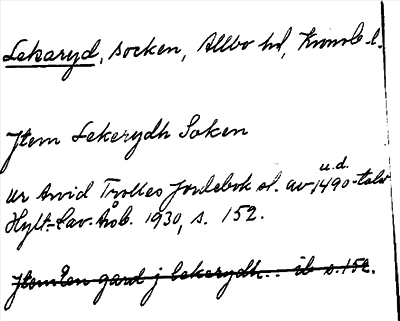 Lekaryd, socken, Allbo hd, Kronob. l.
Jtem Lekerydh Soken
u.d.
ur Arvid Trolles Jordebok sl. av 1490-talet
Hylt.-Cav. Årsb. 1930, s. 152.
Jtem en gard j lekerydh.. ib s. 152.